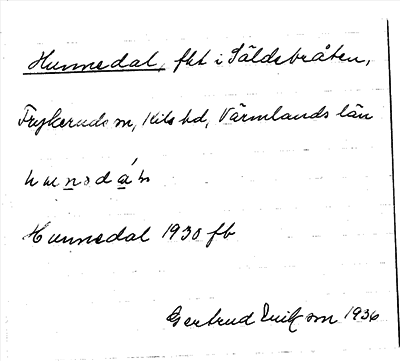 Hunnedal, fht i Säldebråten,
Frykeruds sn, Kils hd, Värmlands län
Hunnedal 1930 fb
Gertrud Erikson 1936